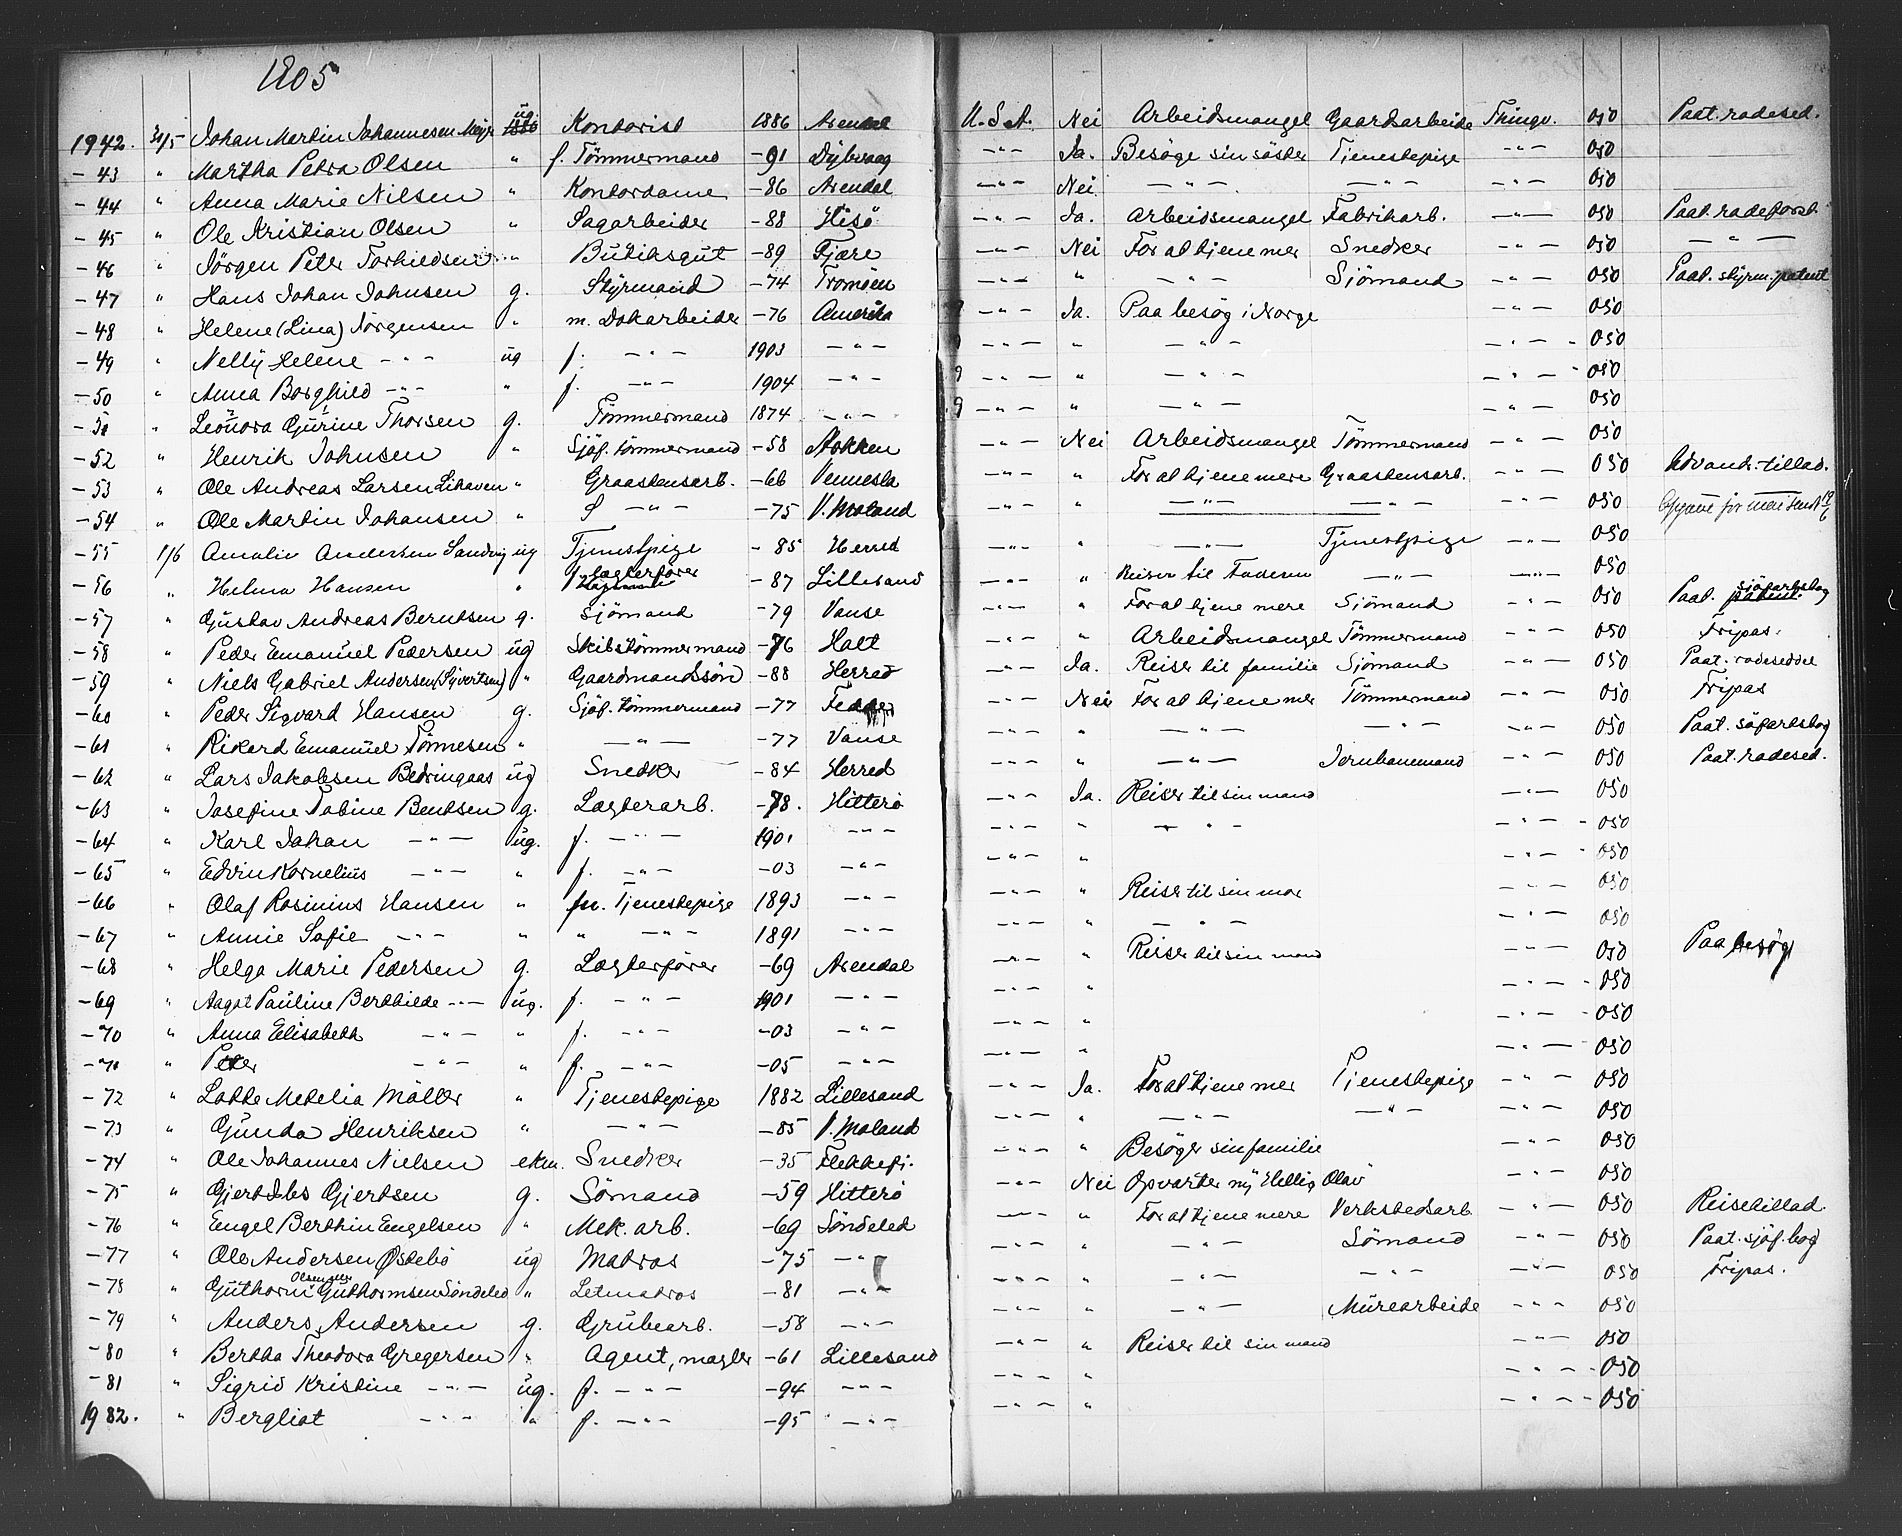 1905
1942. 31/5 Johan Martin Johannesen Meyer ug. Kontorist 1886 Arendal U.S.A. Nei Arbeidsmangel Gaardsarbeide Thingv. 050 Paat. radesed.
-43 " Martha Petra Olsen " f. Tömmermand -91 Dybvaag -"- Ja. Besöge sin söster Tjenestepige 050
-44 " Anna Marie Nilsen " Kontordame -86 Arendal -"- Nei -"- -"- -"- 050
-45 " Ole Kristian Olsen " Sagarbeider -88 Hisö -"- Ja. Arbeidsmangel Fabrikarb. -"- 050
-46 " Jörgen Peter Torkiedsen " Butiksgut -89 Fjære -"- Nei For at tjene mer Snedker -"- 050 -"-
-47 " Hans Johan Johnsen g. Styrmand -74 Tromöen -"- " -"- Sjömand -"- 050 Paat. styrm. patent
-48 " Helene (Lina) Jörgensen " m. Dokarbeider -76 Amerika -"- Ja. Paa besög i Norge -"- 050
-49 " Nelly Helene -"- ug f. -"- 1903 -"- -"- " -"- -"- 050
-50 " Anna Borghild -"- " f. -"- 1904 -"- -"- " -"- -"- 050
-51 " Leonora Gurine Thorsen g. Tömmermand 1874 -"- -"- " -"- -"- 050
-52 " Henrik Johnsen " Sjöf. tömmermand -58 Stokken -"- Nei Arbeidsmangel Tömmermand -"- 050
-53 " Ole Andreas Larsen " Graastensarb. -66 Vennesla -"- " For at tjene mere Graastensarb. -"- 050 Udvandr. tillad.
-54 " Ole Martin Johansen " S -"- -75 V. Moland -"- " -"- -"- -"- 050
-55 1/6 Amalie Andersen Sandvig ug Tjenestpige -85 Herred -"- " -"- Tjenestpige -"- 050
-56 " Helma Hansen " Lægterförer -87 Lillesand -"- " Reiser til Faderen -"- -"- 050
-57 " Gustav Andreas Berntsen g. Sjömand -79 Vanse -"- " For at tjene mere Sjömand -"- 050 Paat. sjöfartsbog
-58 " Peder Emanuel Pedersen ug Skibstömmermand -76 Holt -"- " Arbeidsmangel Tömmermand -"- 050 Fripas.
-59 " Niels Gabriel Andersen (Syvertsen) " Gaardmandssön -88 Herred -"- Ja. Reiser til familie Sjömand -"- 050 Paat. radeseddel
-60 " Peder Sigvard Hansen g. Sjöf. tömmermand -77 Fedde -"- Nei For at tjene mer Tömmermand -"- 050 Fripas
-61 " Rikard Emanuel Tönnesen " -"- -77 Vanse -"- " -"- -"- -"- 050 Paat. söfartsbog
-62 " Lars Jakobsen Bedringaas ug Snedker -84 Herred -"- " -"- Jernbanemand -"- 050 Paat. radesed.
-63 " Josefine Tobine Bentsen g. Lægterarb. -78. Hitterö -"- Ja. Reiser til sin mand -"- 050
-64 " Karl Johan -"- ug. f. -"- 1901 -"- -"- " -"- -"- 050
-65 " Edvin Kornelius -"- " f. -"- -03 -"- -"- " -"- 050
-66 " Olaf Rosinius Hansen " fm. Tjenestepige 1893 -"- -"- " Reiser til sin mor -"- 050
-67 " Annie Sofie -"- " " -"- 1891 -"- -"- " -"- -"- 050
-68 " Helga Marie Pedersen g. Lægterförer -69 Arendal -"- " Reiser til sin mand 050 Paa besög
-69 " Aagot Pauline Berthilde -"- ug. f. -"- 1901 -"- -"- " -"- 050
-70 " Anna Elisabeth -"- " f. -"- -03 -"- -"- " -"- 050
-71 " Peter -"- " f. -"- -05 -"- -"- " -"- 050
-72 " Lotte Metelia Möller " Tjenestepige 1882 Lillesand -"- Ja. For at tjene mer Tjenestepige -"- 050
-73 " Gunda Henriksen " -"- -85 V. Moland -"- " -"- -"- -"- 050
-74 " Ole Johannes Nielsen ekm. Snedker -35 Flekkefj. -"- " Besöger sin familie -"- 050
-75 " Gjert Gjertsen g. Sömand -59 Hitterö -"- Nei Opvarter ny Hellig Olav -"- 050
-76 " Engel Berthin Engelsen " Mek. arb. -69 Söndeled -"- " For at tjene mere Verkstedsarb -"- 050 Reisetillad.
-77 " Ole Andersen Östebö ug Matros -75 -"- -"- " -"- Sömand -"- 050 Paat. sjöf. bog
-78 " Guthorm Olsen Guthormsen Söndeled " Letmatros -81 -"- -"- " -"- -"- -"- 050 Fripas.
-79 " Anders Andersen g. Grubearb. -58 -"- -"- " -"- Murearbeide -"- 050
-80 " Bertha Theodora Gregersen " Agent, mægler -61 Lillesand -"- " Reiser til sin mand -"- 050
-81 " Sigrid Kristine -"- ug. f. -"- -94 -"- -"- " -"- 050
1982. " Bergliot -"- " f. -"- -95 -"- -"- " -"- 050